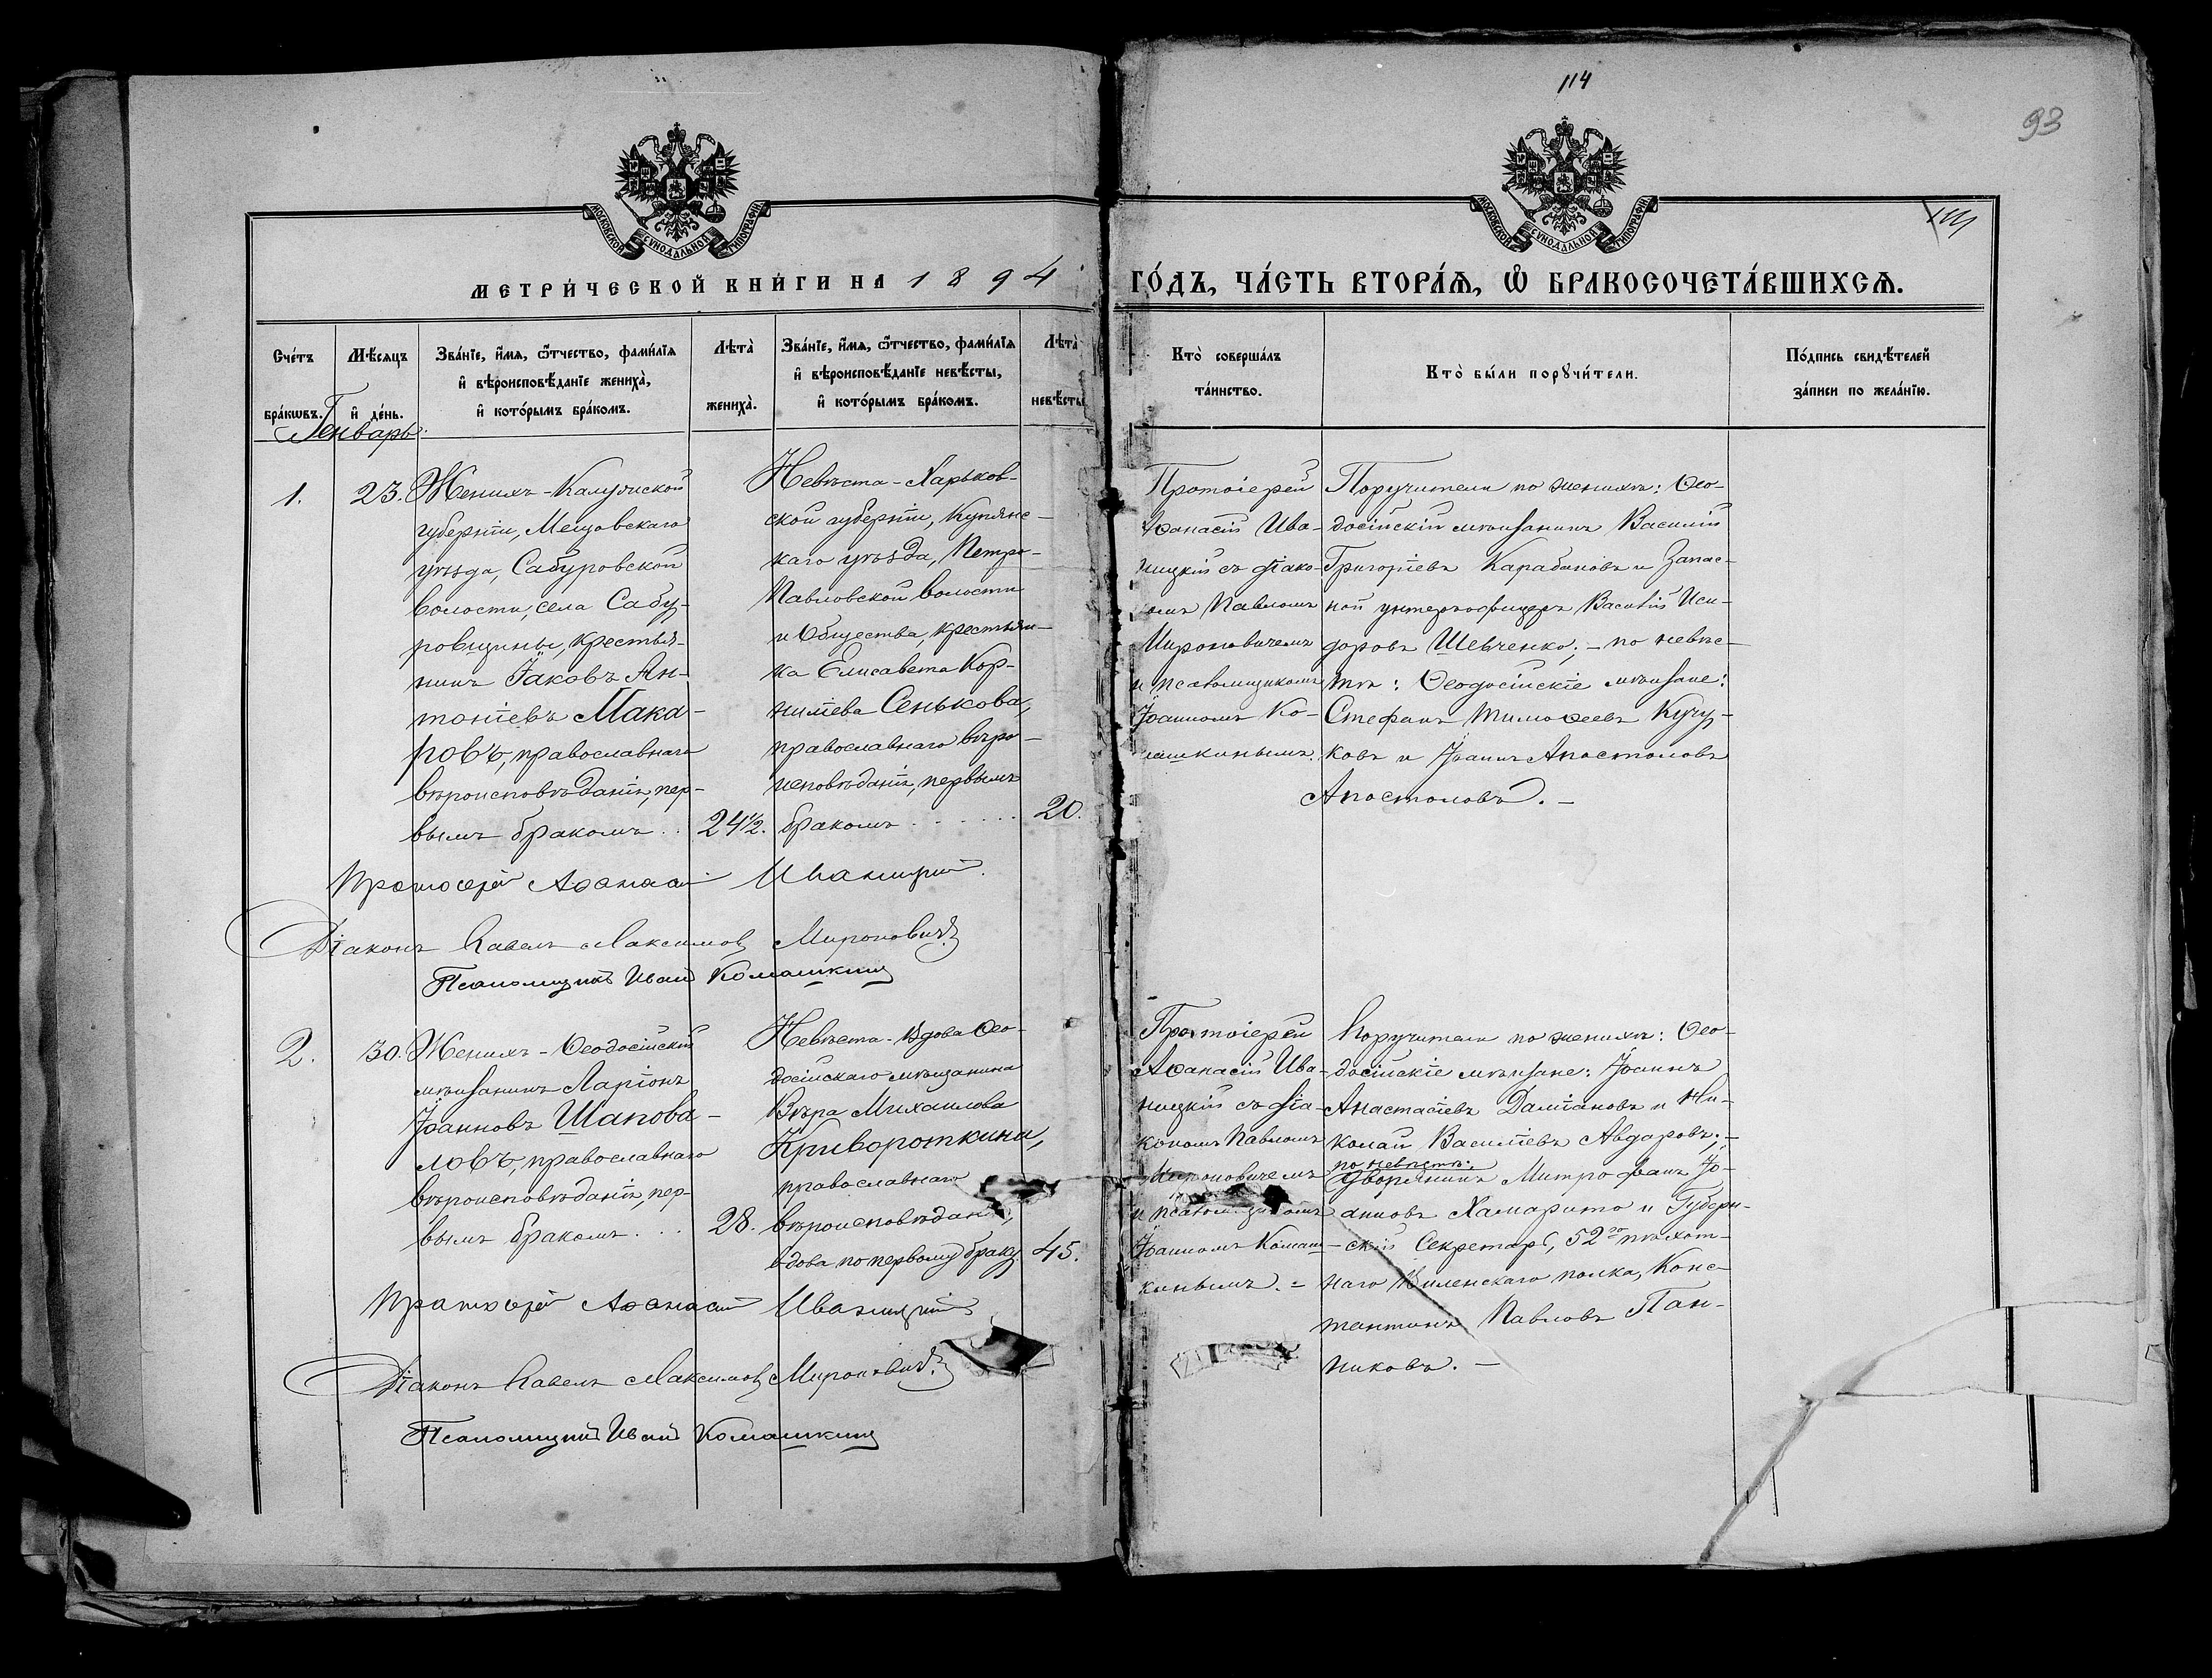 114
93
МОСКОВСКОЙ СѴНОДАЛЬНОЙ ТИПОГРАФІИ
МОСКОВСКОЙ СѴНОДАЛЬНОЙ ТИПОГРАФІИ
МЕТРИ́ЧЕСКОЙ КНИ́ГИ НА 1894
ГО́ДЪ, ЧА́СТЬ ВТОРА́Ѧ, Ѡ҆ БРАКОСОЧЕТА́ВШИХСѦ.
Сче́тъ бра́кѡвъ.
Мѣ́сяцъ и҆ де́нь.
Зва́нїе, и҆́мѧ, ѻ҆́тчество, фами́лїѧ
и҆ вѣроисповѣ́данїе жениха̀,
и҆ кото́рымъ бра́комъ.
Лѣта̀ жениха̀.
Зва́нїе, и҆́мѧ, ѻ҆́тчество, фами́лїѧ
и҆ вѣроисповѣ́данїе невѣ́сты,
и҆ кото́рымъ бра́комъ.
Лѣта̀ невѣ́сты
Кто̀ соверша́лъ
та́инство.
Кто̀ бы́ли порꙋчи́тели.
По́дпись свидѣ́телей
за́писи по жела́нїю.
Генварь.
1.
23.
Женихъ - Калужской
губерніи, Мещовскаго
уѣзда, Сабуровской
волости, села Сабу-
ровщины, крестья-
нинъ Іаковъ Ан-
тоніевъ Мака-
ровъ, православнаго
вѣроисповѣданія, пер-
вымъ бракомъ . .
24½.
Невѣста - Харьков-
ской губерніи, Купянс-
каго уѣзда, Петро-
Павловской волости
и Общества, крестьян-
ка Елисавета Кор-
ниліева Сенькова,
православнаго вѣро-
исповѣданія, первымъ
бракомъ . . . . . .
20.
Протоіерей
Аѳанасій Ива-
ницкій съ діако-
номъ Павломъ
Мироновичемъ
и псаломщикомъ
Іоанномъ Ко-
машкинымъ.
Поручители по женихѣ: Ѳео-
досійскій мѣщанинъ Василій
Григоріевъ Карабановъ и Запас-
ной унтеръ-офицеръ Василій Иси-
доровъ Шевченко; - по невѣс-
тѣ: Ѳеодосійскіе мѣщане:
Стефанъ Тимоѳеевъ Кучу-
ковъ и Іоаннъ Апостоловъ
Апостоловъ. -
Протоіерей Аѳанасій Иваницкій.
Діаконъ Павелъ Максимовъ Мироновичъ
Псаломщикъ Иванъ Комашкинъ
2.
30.
Женихъ - Ѳеодосійскій
мѣщанинъ Ларіонъ
Іоанновъ Шапова-
ловъ, православнаго
вѣроисповѣданія, пер-
вымъ бракомъ . . .
28.
Невѣста - вдова Ѳео-
досійскаго мѣщанина
Вѣра Михаилова
Криворoткина,
православнаго
вѣроисповѣданія,
вдова по первому браку
45.
Протоіерей
Аѳанасій Ива-
ницкій съ діа-
кономъ Павломъ
Мироновичемъ
и псаломщикомъ
Іоанномъ Комаш-
кинымъ. =
Поручители по женихѣ: Ѳео-
досійскіе мѣщане: Іоаннъ
Анастасіевъ Даміановъ и Ни-
колай Василіевъ Авдаровъ; -
по невѣстѣ:
Дворянинъ Митрофанъ Іо-
анновъ Хамарито и Губерн-
скій Секретарь, 52го пѣхот-
наго Виленскаго полка, Конс-
тантинъ Павловъ Пан-
никовъ. -
Протоіерей Аѳанасій Иваницкій
Діаконъ Павелъ Максимовъ Мироновичъ
Псаломщикъ Иванъ Комашкинъ